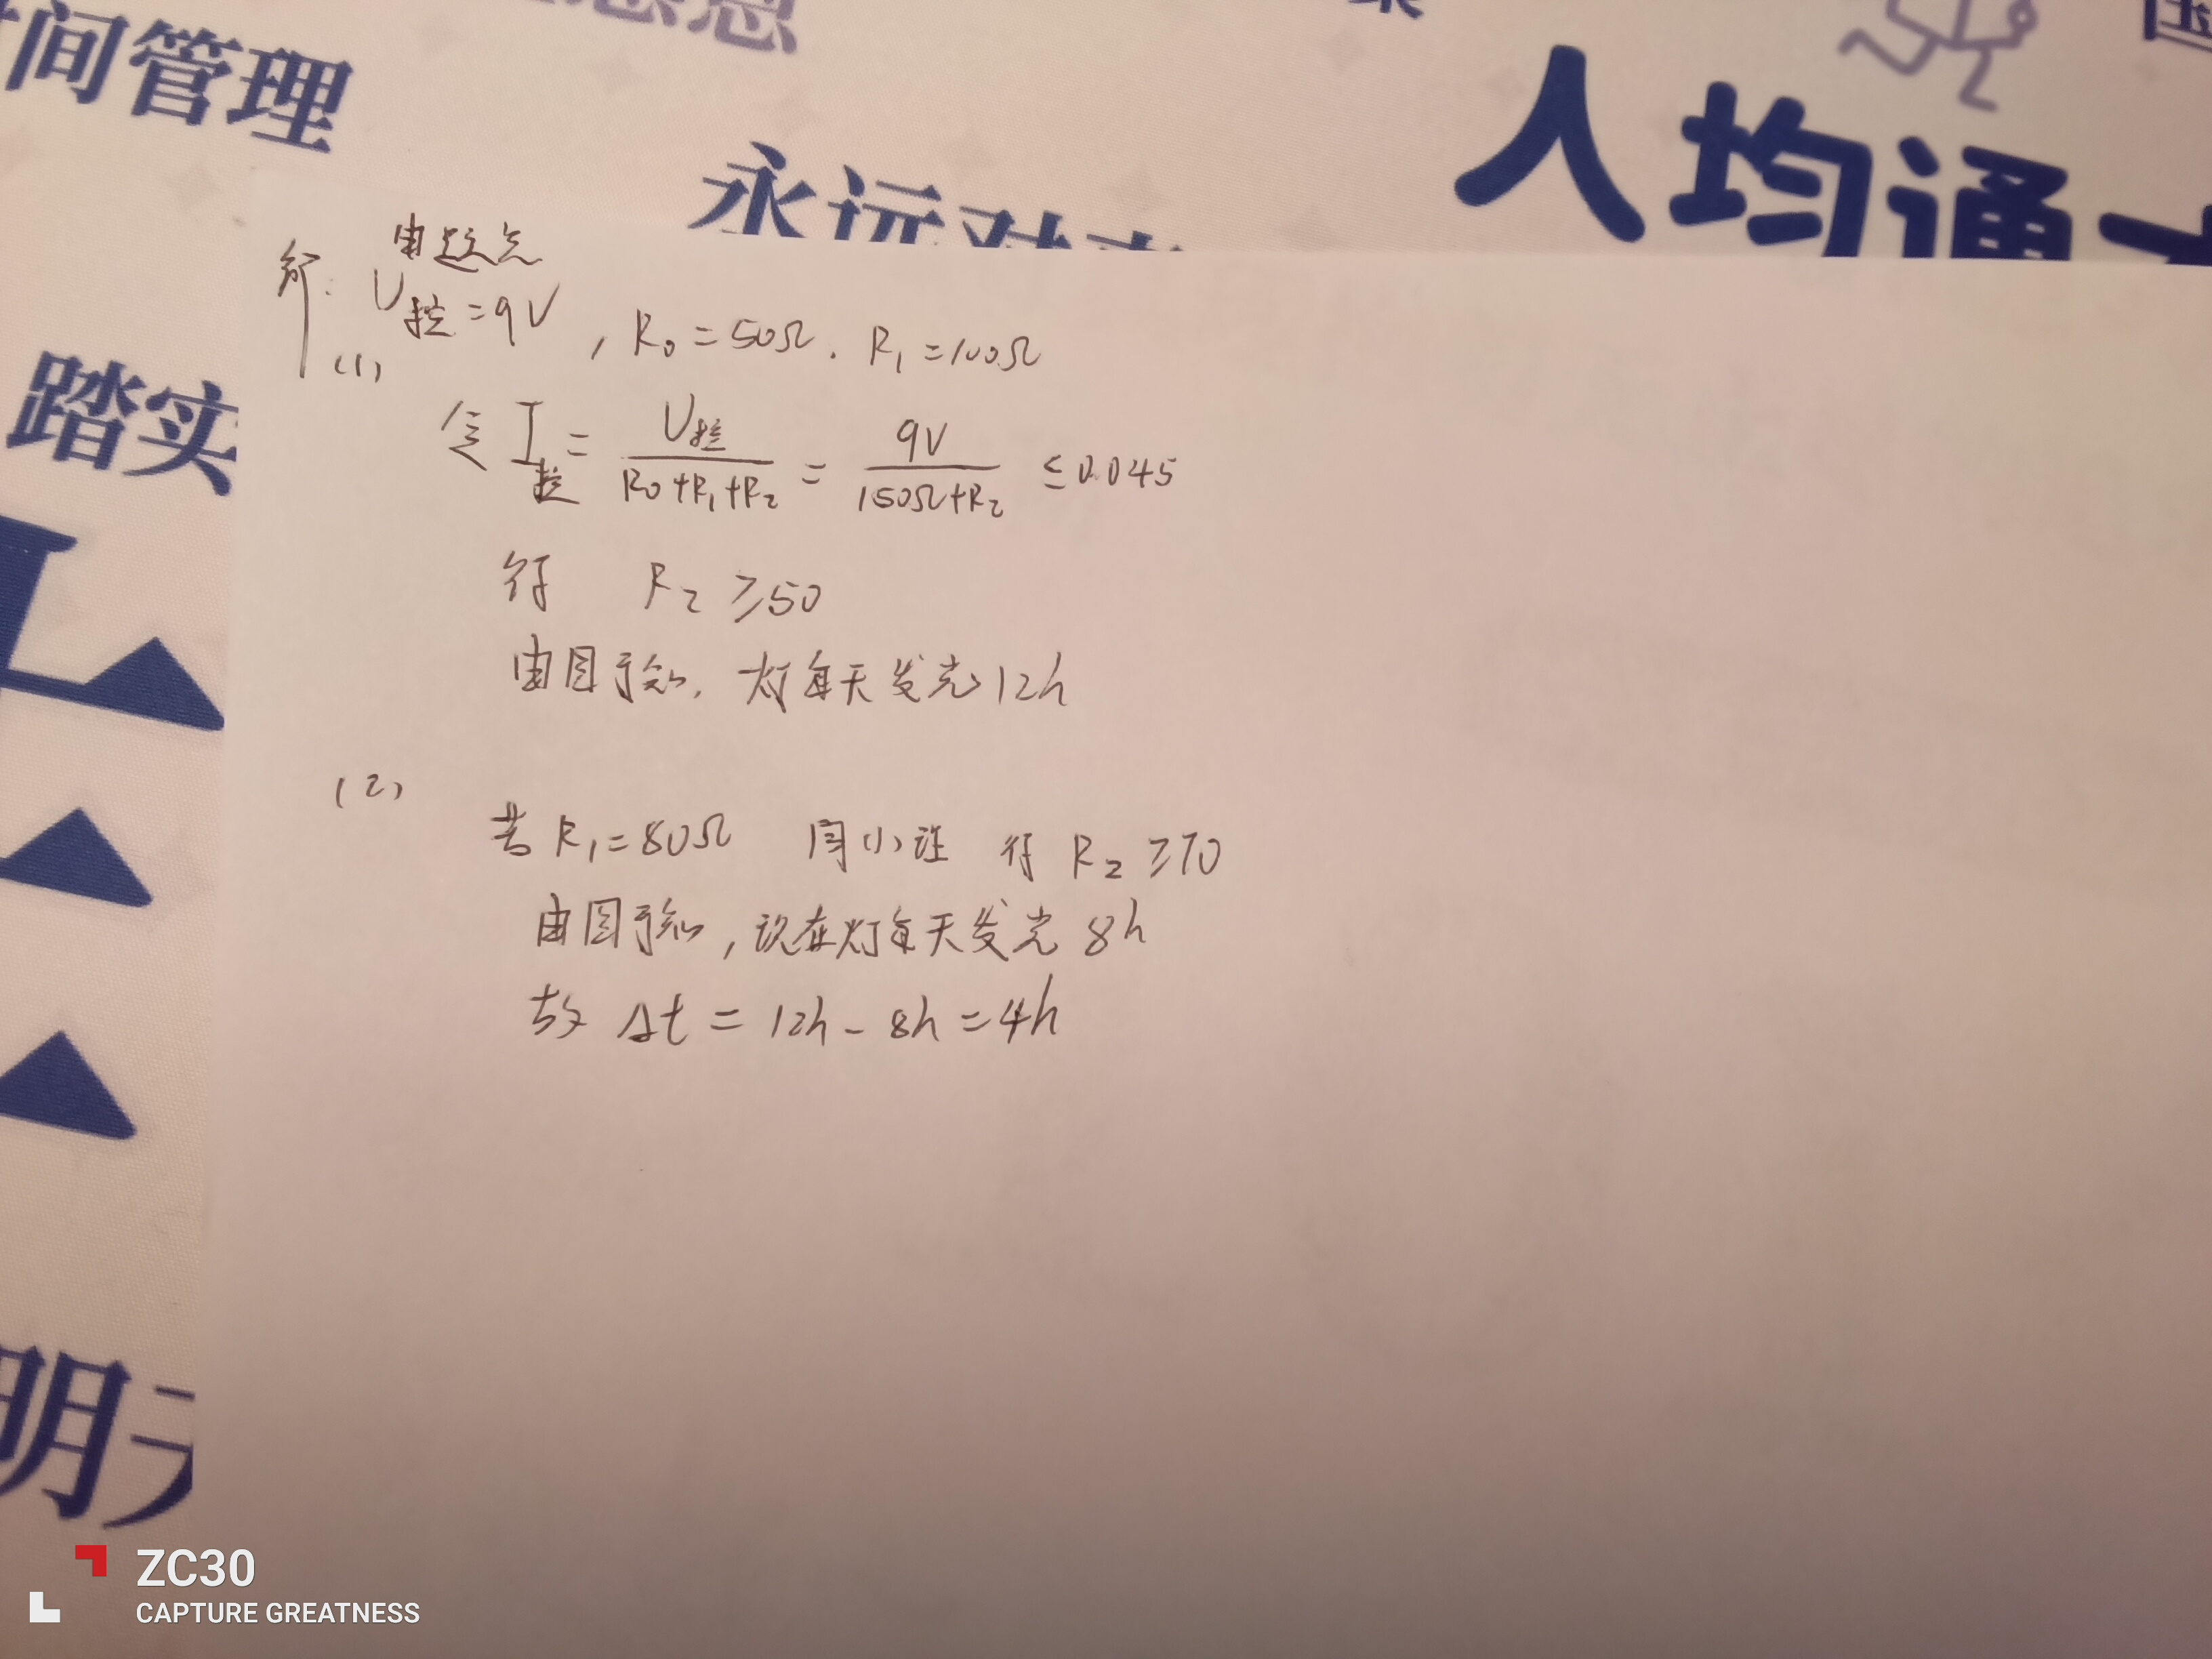 时间管理
人均通
永远对
踏实
明天
解:由题意
U控=9V,R₀=50Ω.R₁=100Ω
(1)
令 I控 = U控/(R₀+R₁+R₂) = 9V/(150Ω+R₂) ≤0.045
得 R₂ ≥50
由图可知,灯每天发光12h
(2)
若R₁=80Ω 同(1)理 得 R₂ ≥70
由图可知,现在灯每天发光 8h
故 Δt = 12h - 8h = 4h
ZC30
CAPTURE GREATNESS